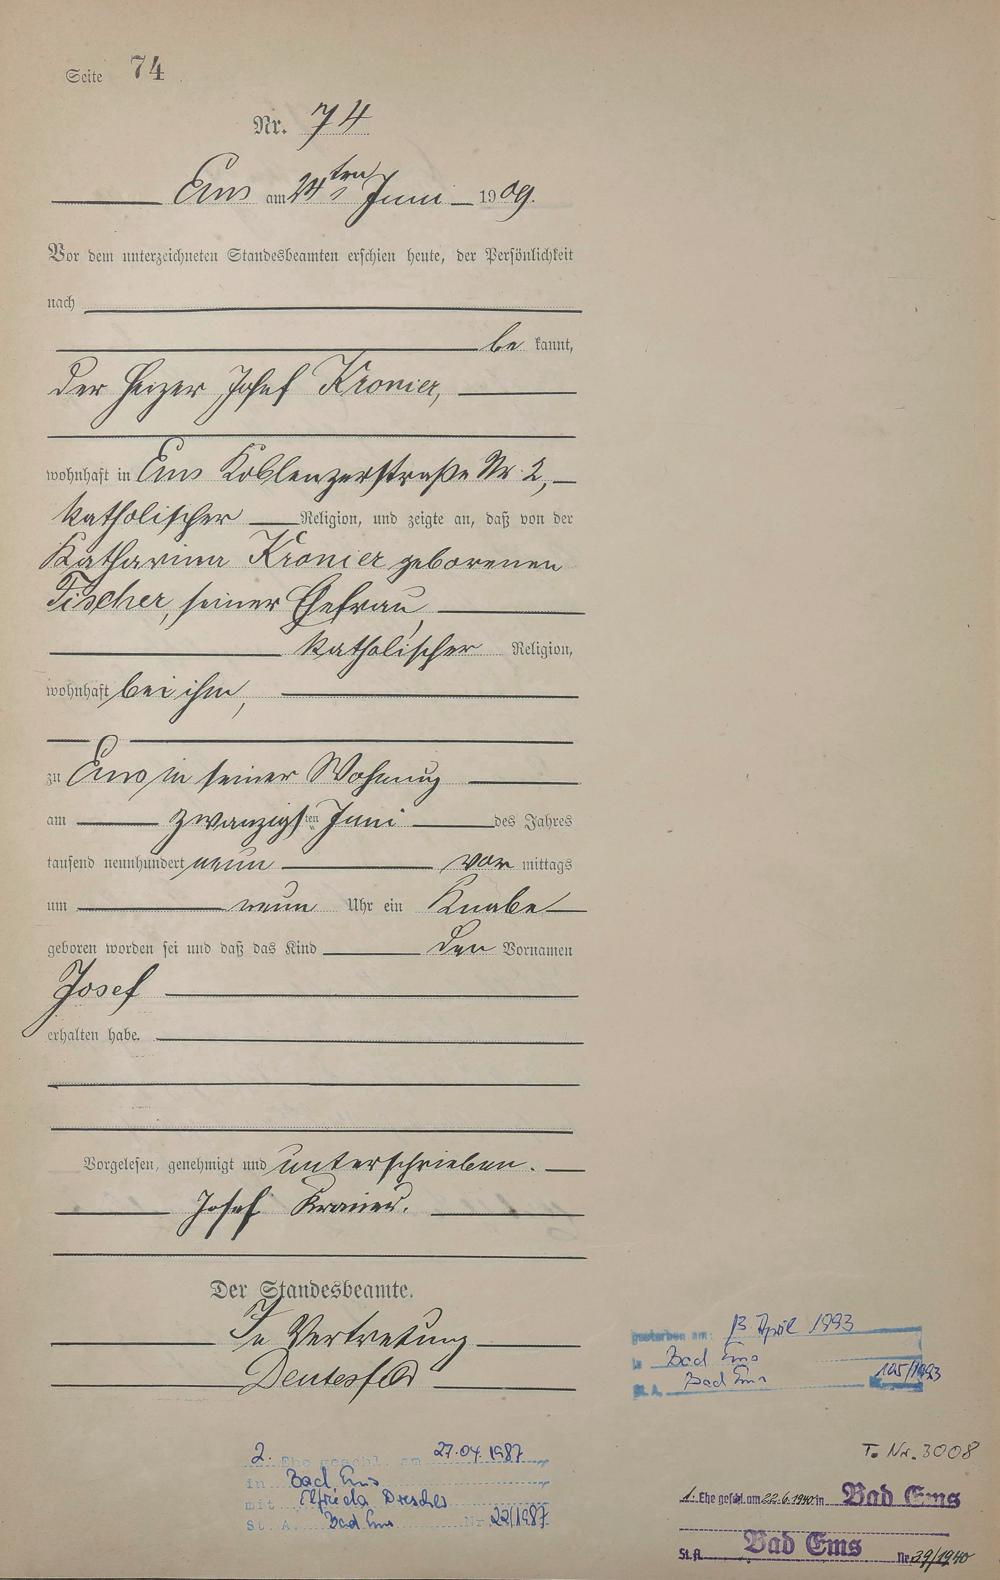 Seite 74
Nr. 74
Ems am 24ten Juni 1909.
Vor dem unterzeichneten Standesbeamten erschien heute, der Persönlichkeit
nach
be kannt,
der Heizer Josef Kronier,
wohnhaft in Ems Koblenzerstraße Nr. 2,
katholischer Religion, und zeigte an, daß von der
Katharina Kronier geborenen
Fischer, seiner Ehefrau,
katholischer Religion,
wohnhaft bei ihm,
zu Ems in seiner Wohnung
am zwanzigsten Juni des Jahres
tausend neunhundert neun vor mittags
um neun Uhr ein Knabe
geboren worden sei und daß das Kind den Vornamen
Josef
erhalten habe.
Vorgelesen, genehmigt und unterschrieben.
Josef Kronier.
Der Standesbeamte.
In Vertretung
gestorben am: 13. April 1993
in Bad Ems
St. A. Bad Ems 105/1993
2. Ehe geschl. am 27.04.1987
in Bad Ems
mit Elfrieda
St. A. Bad Ems Nr 22/1987
T. Nr. 3008
1. Ehe geschl. am 22.6.1940 in Bad Ems
St.A. Bad Ems Nr 39/1940